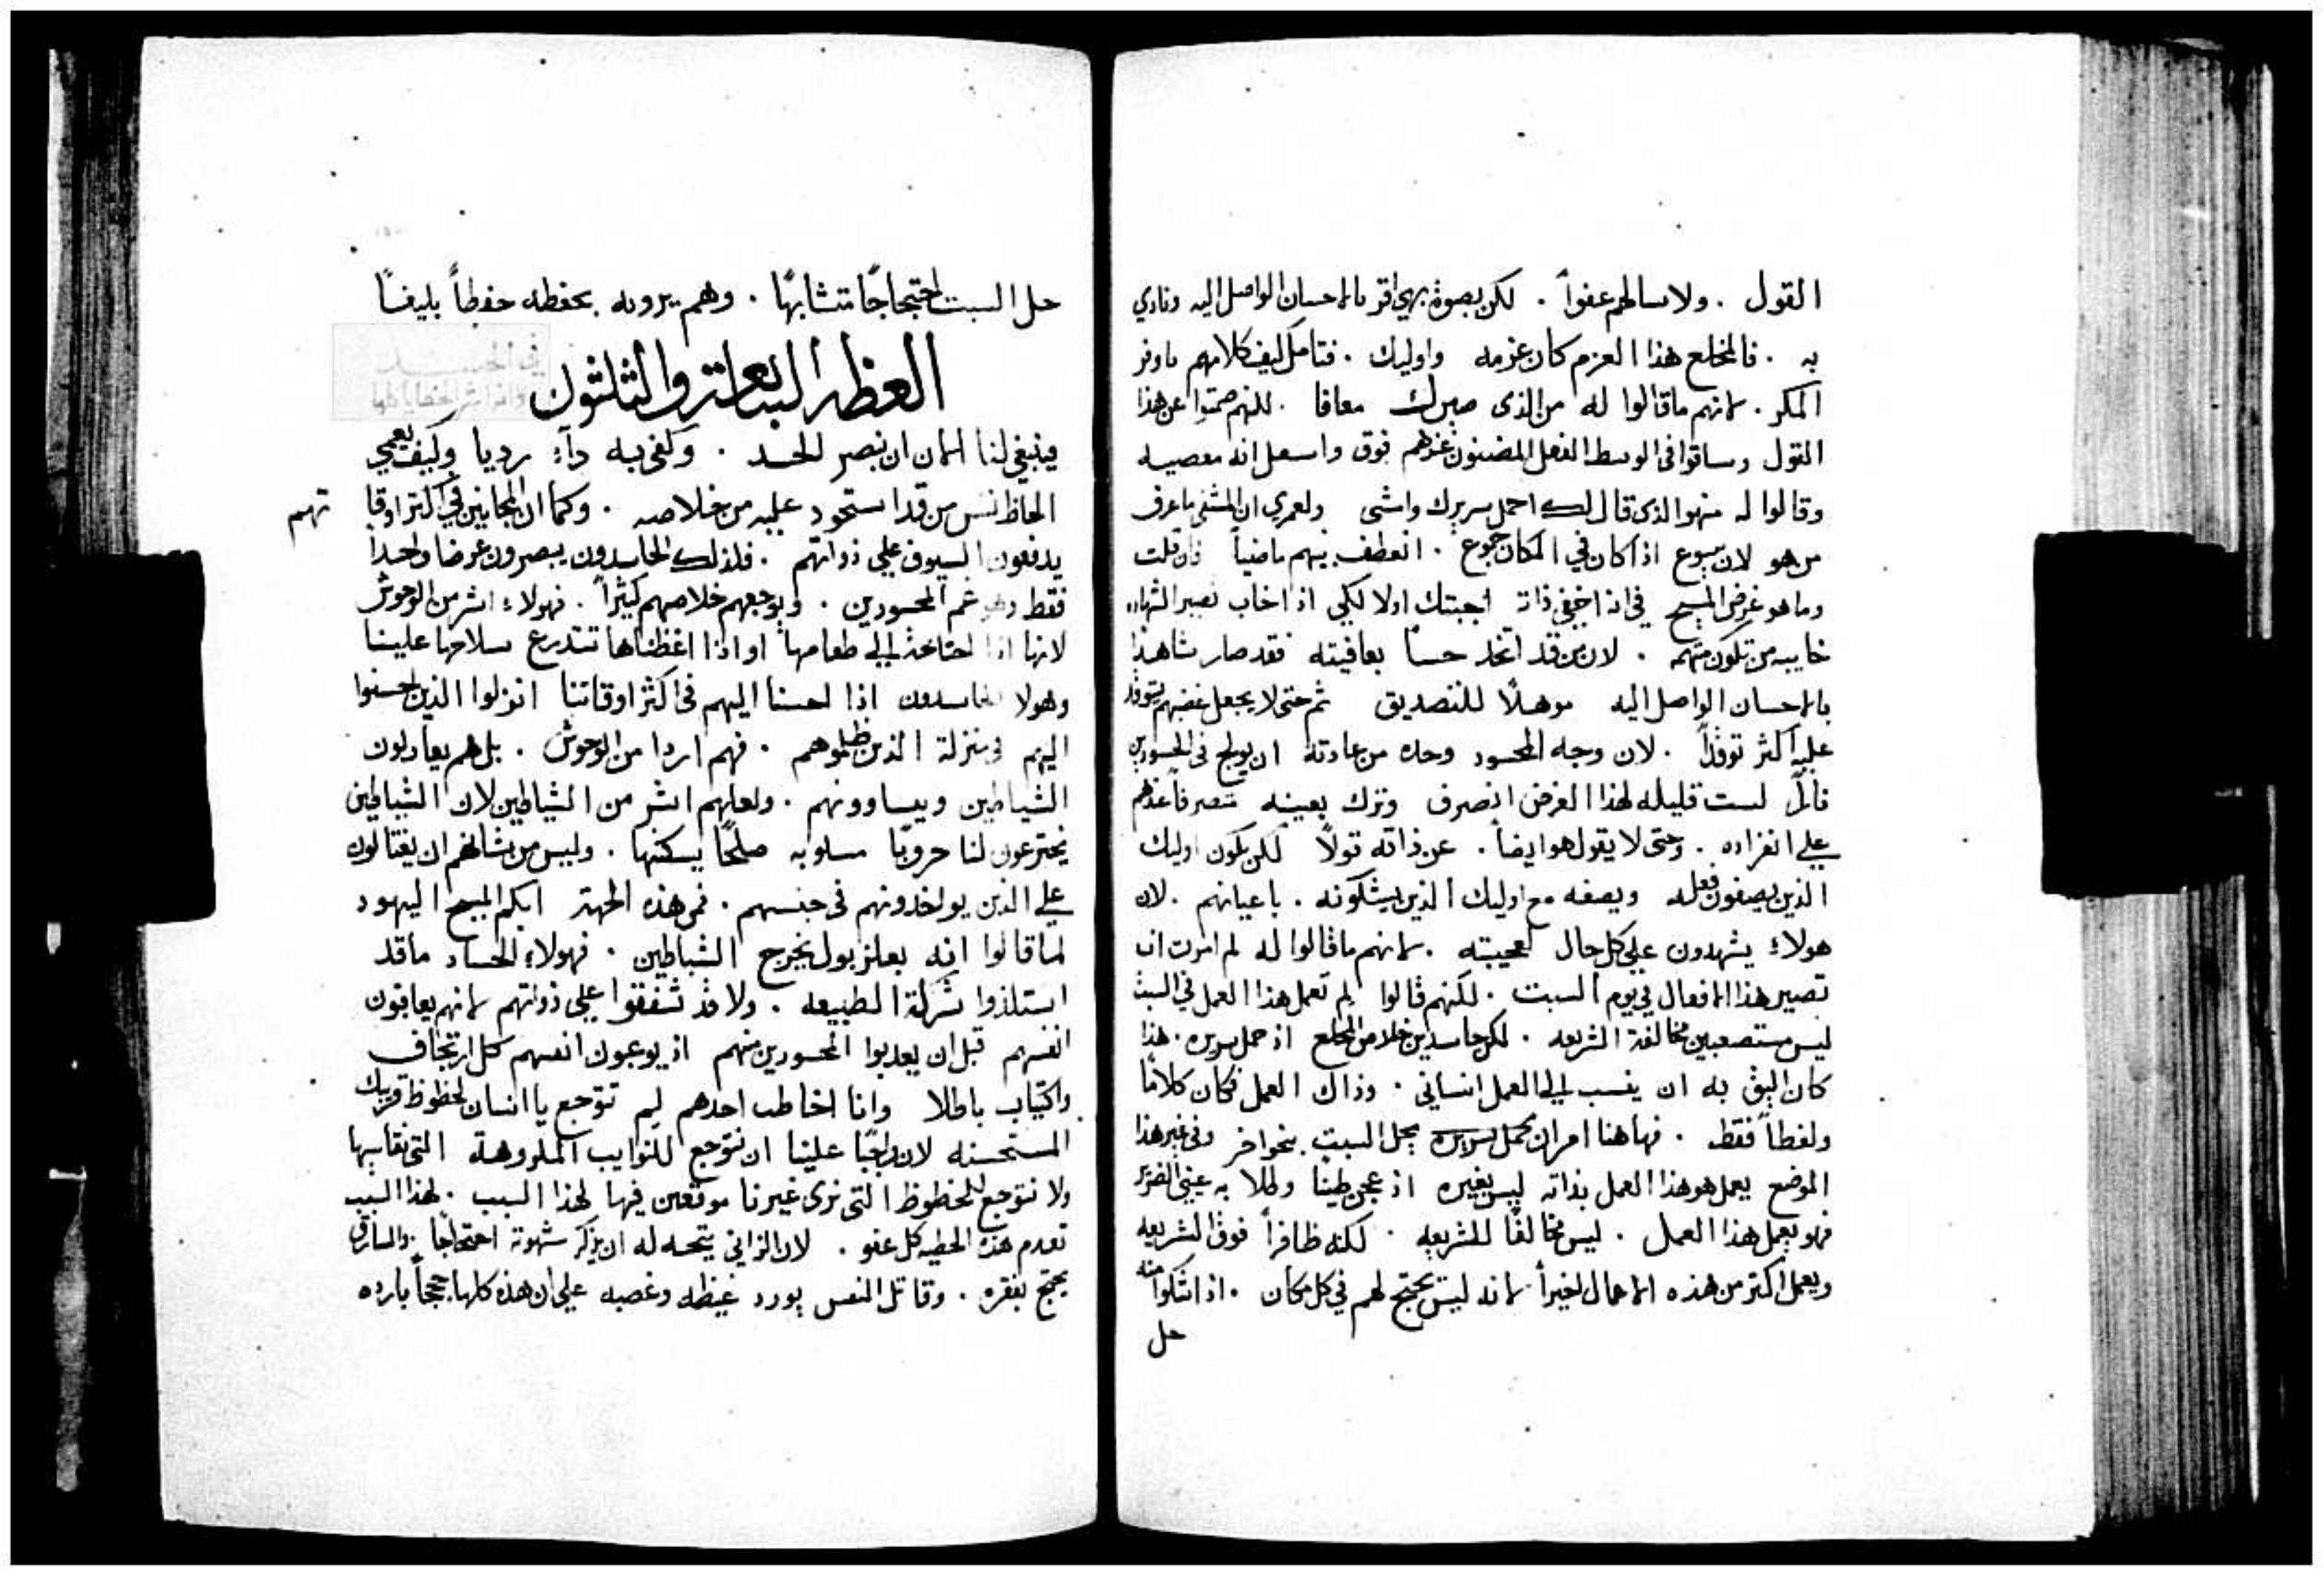 القول . ولا سالهم عفواً . لكن بصوة بهي اقر بالاحسان الواصل اليه ونادي
به . فالمخلع هذا العزم كان عزمه واوليك . فتامل كيف كلامهم باوفر
المكر . لانهم ما قالوا له من الذى صيرك معافا . لكنهم صمتوا عن هذا
القول وساقوا فى الوسط الفعل المضنون عندهم فوق انه معصيه
وقالوا له منهو الذى قال لك احمل سريرك وامشى ولعمري ان المشفى ما عرف
من هو لان يسوع اذ كان في المكان جموع . انعطف بينهم ماضياً فان قلت
وما هو غرض المسيح في انه اخفى ذاته اجبتك اولا لكي اذا خاب تصير الشهاده
خايبه من تكون متهمه . لان من قد اتخذ حساً بعافيته فقد صار شاهداً
بالاحسان الواصل اليه موهلاً للتصديق ثم حتى لا يجعل غضبهم يتوقد
عليه اكثر توقداً . لان وجه المحسود وحده من عادته ان يولج فى الحسودين
ناراً ليست قليله لهذا الغرض انصرف وترك بعينه عندهم
علي انفراده . وحتى لا يقول هو ايضاً . عن ذاته قولاً لكن يكون اوليك
الذين يصفون فعله ويصفه مع اوليك الذين يشكونه . باعيانهم . لان
هولاء يشهدون على كل حال لعجيبته . لانهم ما قالوا له لم امرت ان
تصير هذا الافعال في يوم السبت . لكنهم قالوا لم تعمل هذا العمل في السبت
ليس مستصعبين مخالفة الشريعه . لكن حاسدين خلاص المخلع اذ حمل سريره . هذا
كان اليق به ان ينسب الي العمل انساني . وذاك العمل فكان كلاماً
ولفظاً فقط . فهاهنا امر ان يحمل سريره بحل السبت بنحو اخر وفي غير هذا
الموضع يعمل هو هذا العمل بذاته ليس بغيره اذ عجن طينا وطلا به عيني الضرير
فهو يعمل هذا العمل . ليس مخالفاً للشريعه . لكنه ظافراً فوق الشريعه
ويعمل اكتر من هذه الاعمال اخيراً لانه ليس يحتج لهم في كل مكان . اذ اشتكوا منه
حل
حل السبت احتجاجاً متشابهاً . وهم يرونه يحفظه حفظاً بليغاً
في الحسد
وانه اشر الخطايا كلها
العظه السابعه والثلثون
فينبغي لنا الان ان نبصر الحسد . وكفى به دآء رديا وكيف يعمي
الحاظ نفس من قد استحوذ عليه من خلاصه . وكما ان المجانين في اكتر اوقا تهم
يدفعون السيوف علي ذواتهم . فلذلك الحاسدون يبصرون غرضا واحداً
فقط وهو غم المحسودين . ويوجعهم خلاصهم كثيراً . فهولاء اشر من الوحوش
لانها اذا احتاجت الي طعامها او اذا اغظناها تتدرع سلاحها علينا
وهولا الحاسدون اذا احسنا اليهم فى اكثر اوقاتنا انزلوا الذين احسنوا
اليهم فى منزلة الذين ظلموهم . فهم اردا من الوحوش . بل هم يعادلون
الشياطين ويساوونهم . ولعلهم اشر من الشياطين لان الشياطين
يخترعون لنا حروبا مسلوبه صلحاً يسكنها . وليس من شانهم ان يغتالون
علي الذين يواخدونهم فى جنسهم . فمن هذه الجهة ابكم المسيح اليهود
لما قالوا انه بعلزبول يخرج الشياطين . فهولاء الحساد ما قد
استلذوا شركة الطبيعه . ولا قد شفقوا علي ذواتهم لانهم يعاقبون
انفسهم قبل ان يعدبوا المحسودين منهم اذ يوعبون انفسهم كل ارتجاف
واكتياب باطلا وانا اخاطب احدهم لم تتوجع يا انسان لحظوظ قريبك
المستحسنه لان واجباً علينا ان نتوجع للنوايب المكروهة التي نقاسيها
ولا نتوجع للحظوظ التى نرى غيرنا موقعين فيها لهذا السبب . لهذا السبب
تعدم هذه الخطيه كل عفو . لان الزاني يتجه له ان يذكر شهوته احتجاجاً . والسارق
يحتج بفقره . وقاتل النفس يورد غيظه وغضبه علي ان هذه كلها حججاً بارده